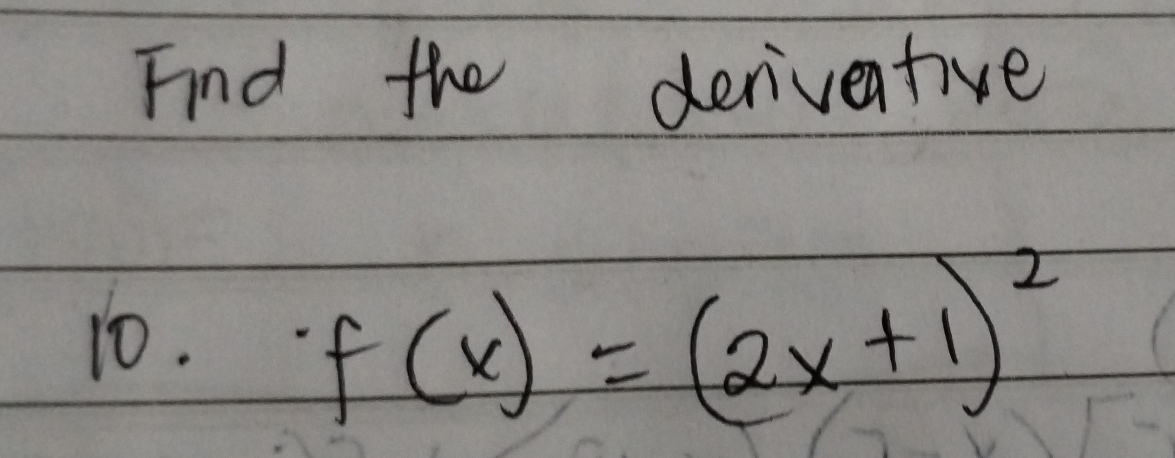 Find the derivative
10. f(x) = (2x+1)²